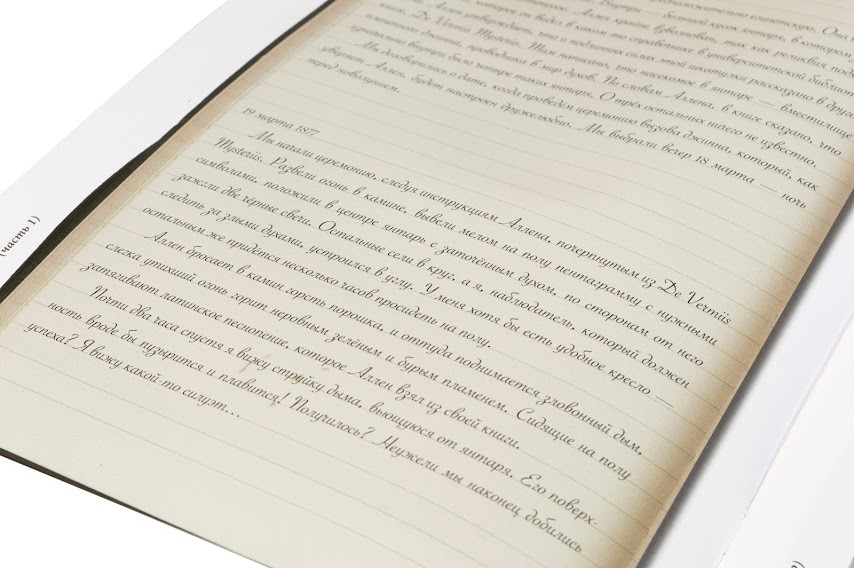 предположительно египетскую. Она
Внутри — большой кусок янтаря, в котором
насекомое. Аллен крайне взволнован, так как реликвия
которое он видел в каком-то справочнике в университетской
Аллен утверждает, что о подлинных силах этой шкатулки рассказано в
книге, De Vermiis Mysteriis. Там написано, что насекомое в янтаре — вместилище
пленённого джинна, проводника в мир духов. По словам Аллена, в книге сказано, что
изначально внутри было четыре таких янтаря. О трёх остальных ничего не известно.
Мы договорились о дате, когда проведём церемонию вызова джинна, который, как
уверяет Аллен, будет настроен дружелюбно. Мы выбрали вечер 18 марта — ночь
перед новолунием.
19 марта 1877
Мы начали церемонию, следуя инструкциям Аллена, почерпнутым из De Vermiis
Mysteriis. Развели огонь в камине, вывели мелом на полу пентаграмму с нужными
символами, положили в центре янтарь с заточённым духом, по сторонам от него
зажгли две чёрные свечи. Остальные сели в круг, а я, наблюдатель, который должен
следить за злыми духами, устроился в углу. У меня хотя бы есть удобное кресло —
остальным же придётся несколько часов просидеть на полу.
Аллен бросает в камин горсть порошка, и оттуда поднимается зловонный дым,
слегка утихший огонь горит неровным зелёным и бурым пламенем. Сидящие на полу
затягивают латинское песнопение, которое Аллен взял из своей книги.
Почти два часа спустя я вижу струйку дыма, вьющуюся от янтаря. Его поверх-
ность вроде бы пузырится и плавится! Получилось? Неужели мы наконец добились
успеха? Я вижу какой-то силуэт...
(часть 1)